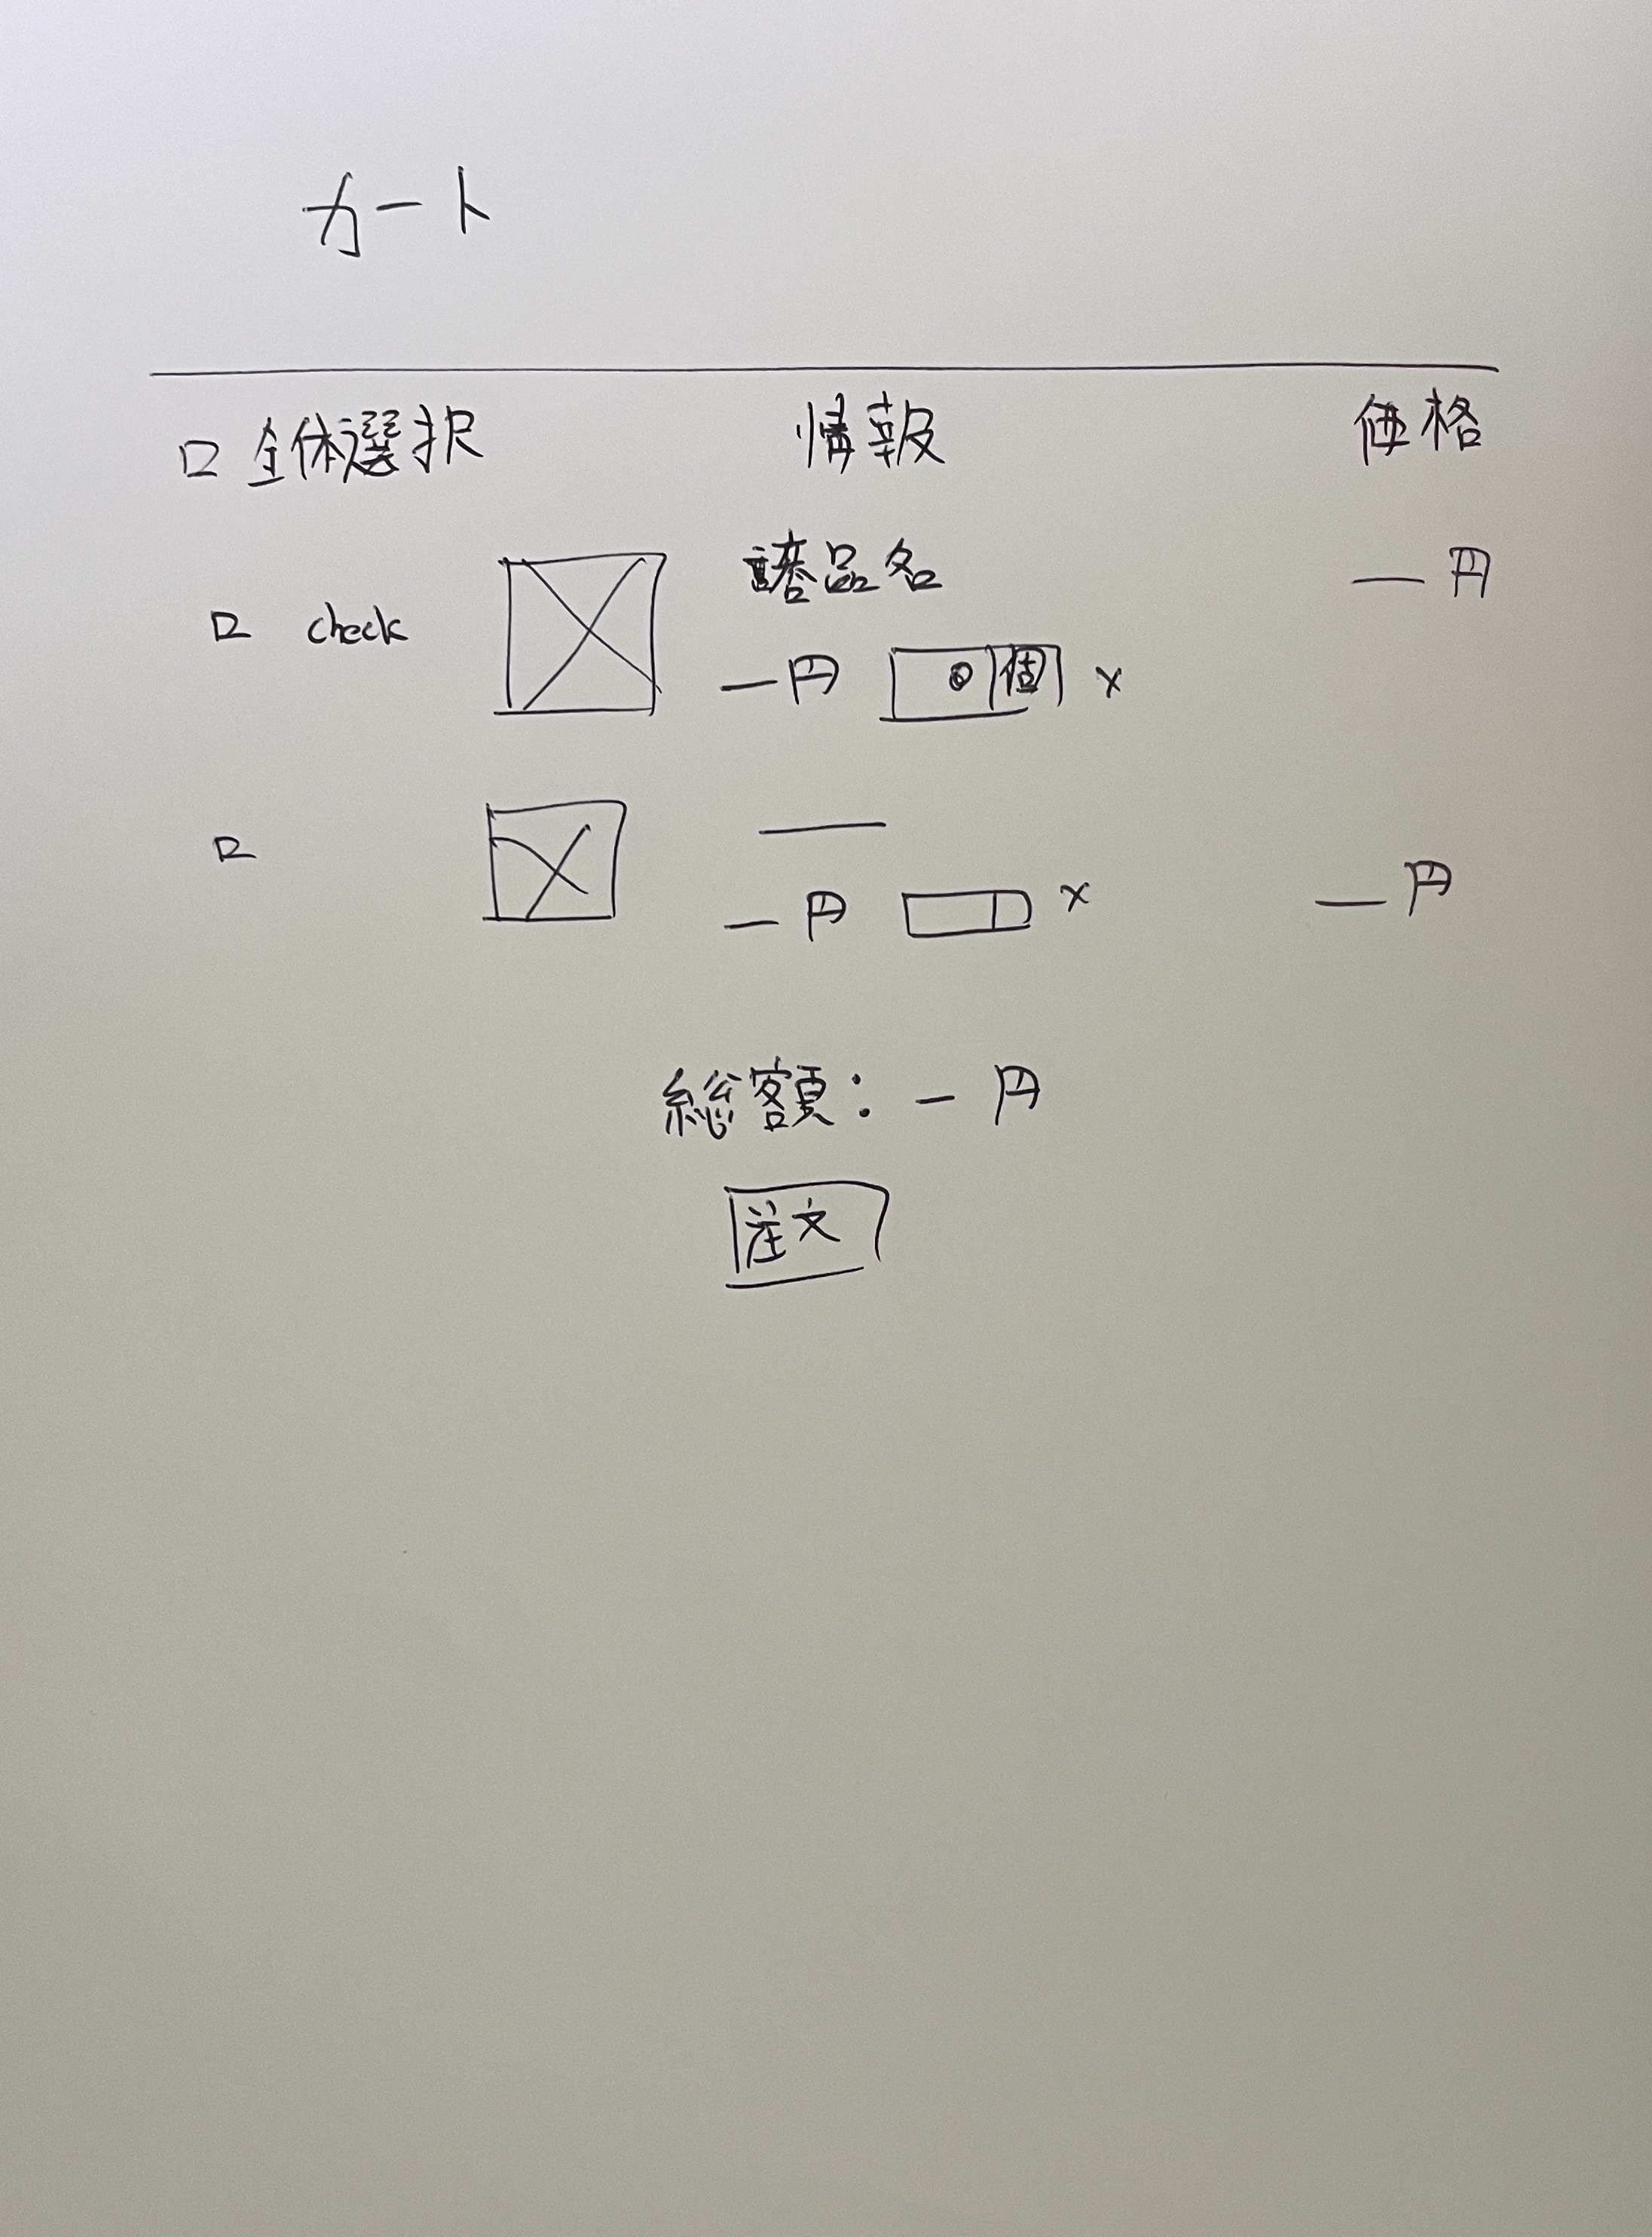 カート
全体選択 情報 価格
check 品名 円
円 個 x
円 x 円
総額: 円
注文